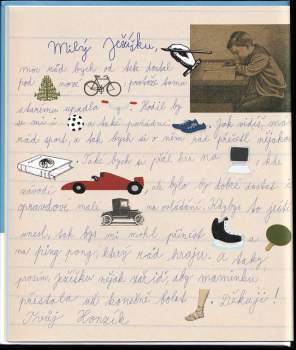 Milý Ježíšku,
moc rád bych od tebe dostal
pod nové protože tomu
starému upadla . Hodil by
se mi i a taky pořádné . Jak vidíš, mám
rád sport, a tak bych si o něm rád přečetl nějakou
. Také bych si přál hru na , kde
závodí , ale bylo by dobré dostat i
opravdové malé na ovládání. Kdybys to ještě
unesl, tak bys mi mohl přinést a
na ping pong, který rád hraju. A taky
prosím, Ježíšku nějak zařiď, aby maminku
přestala už konečně bolet . Děkuji!
Tvůj Honzík